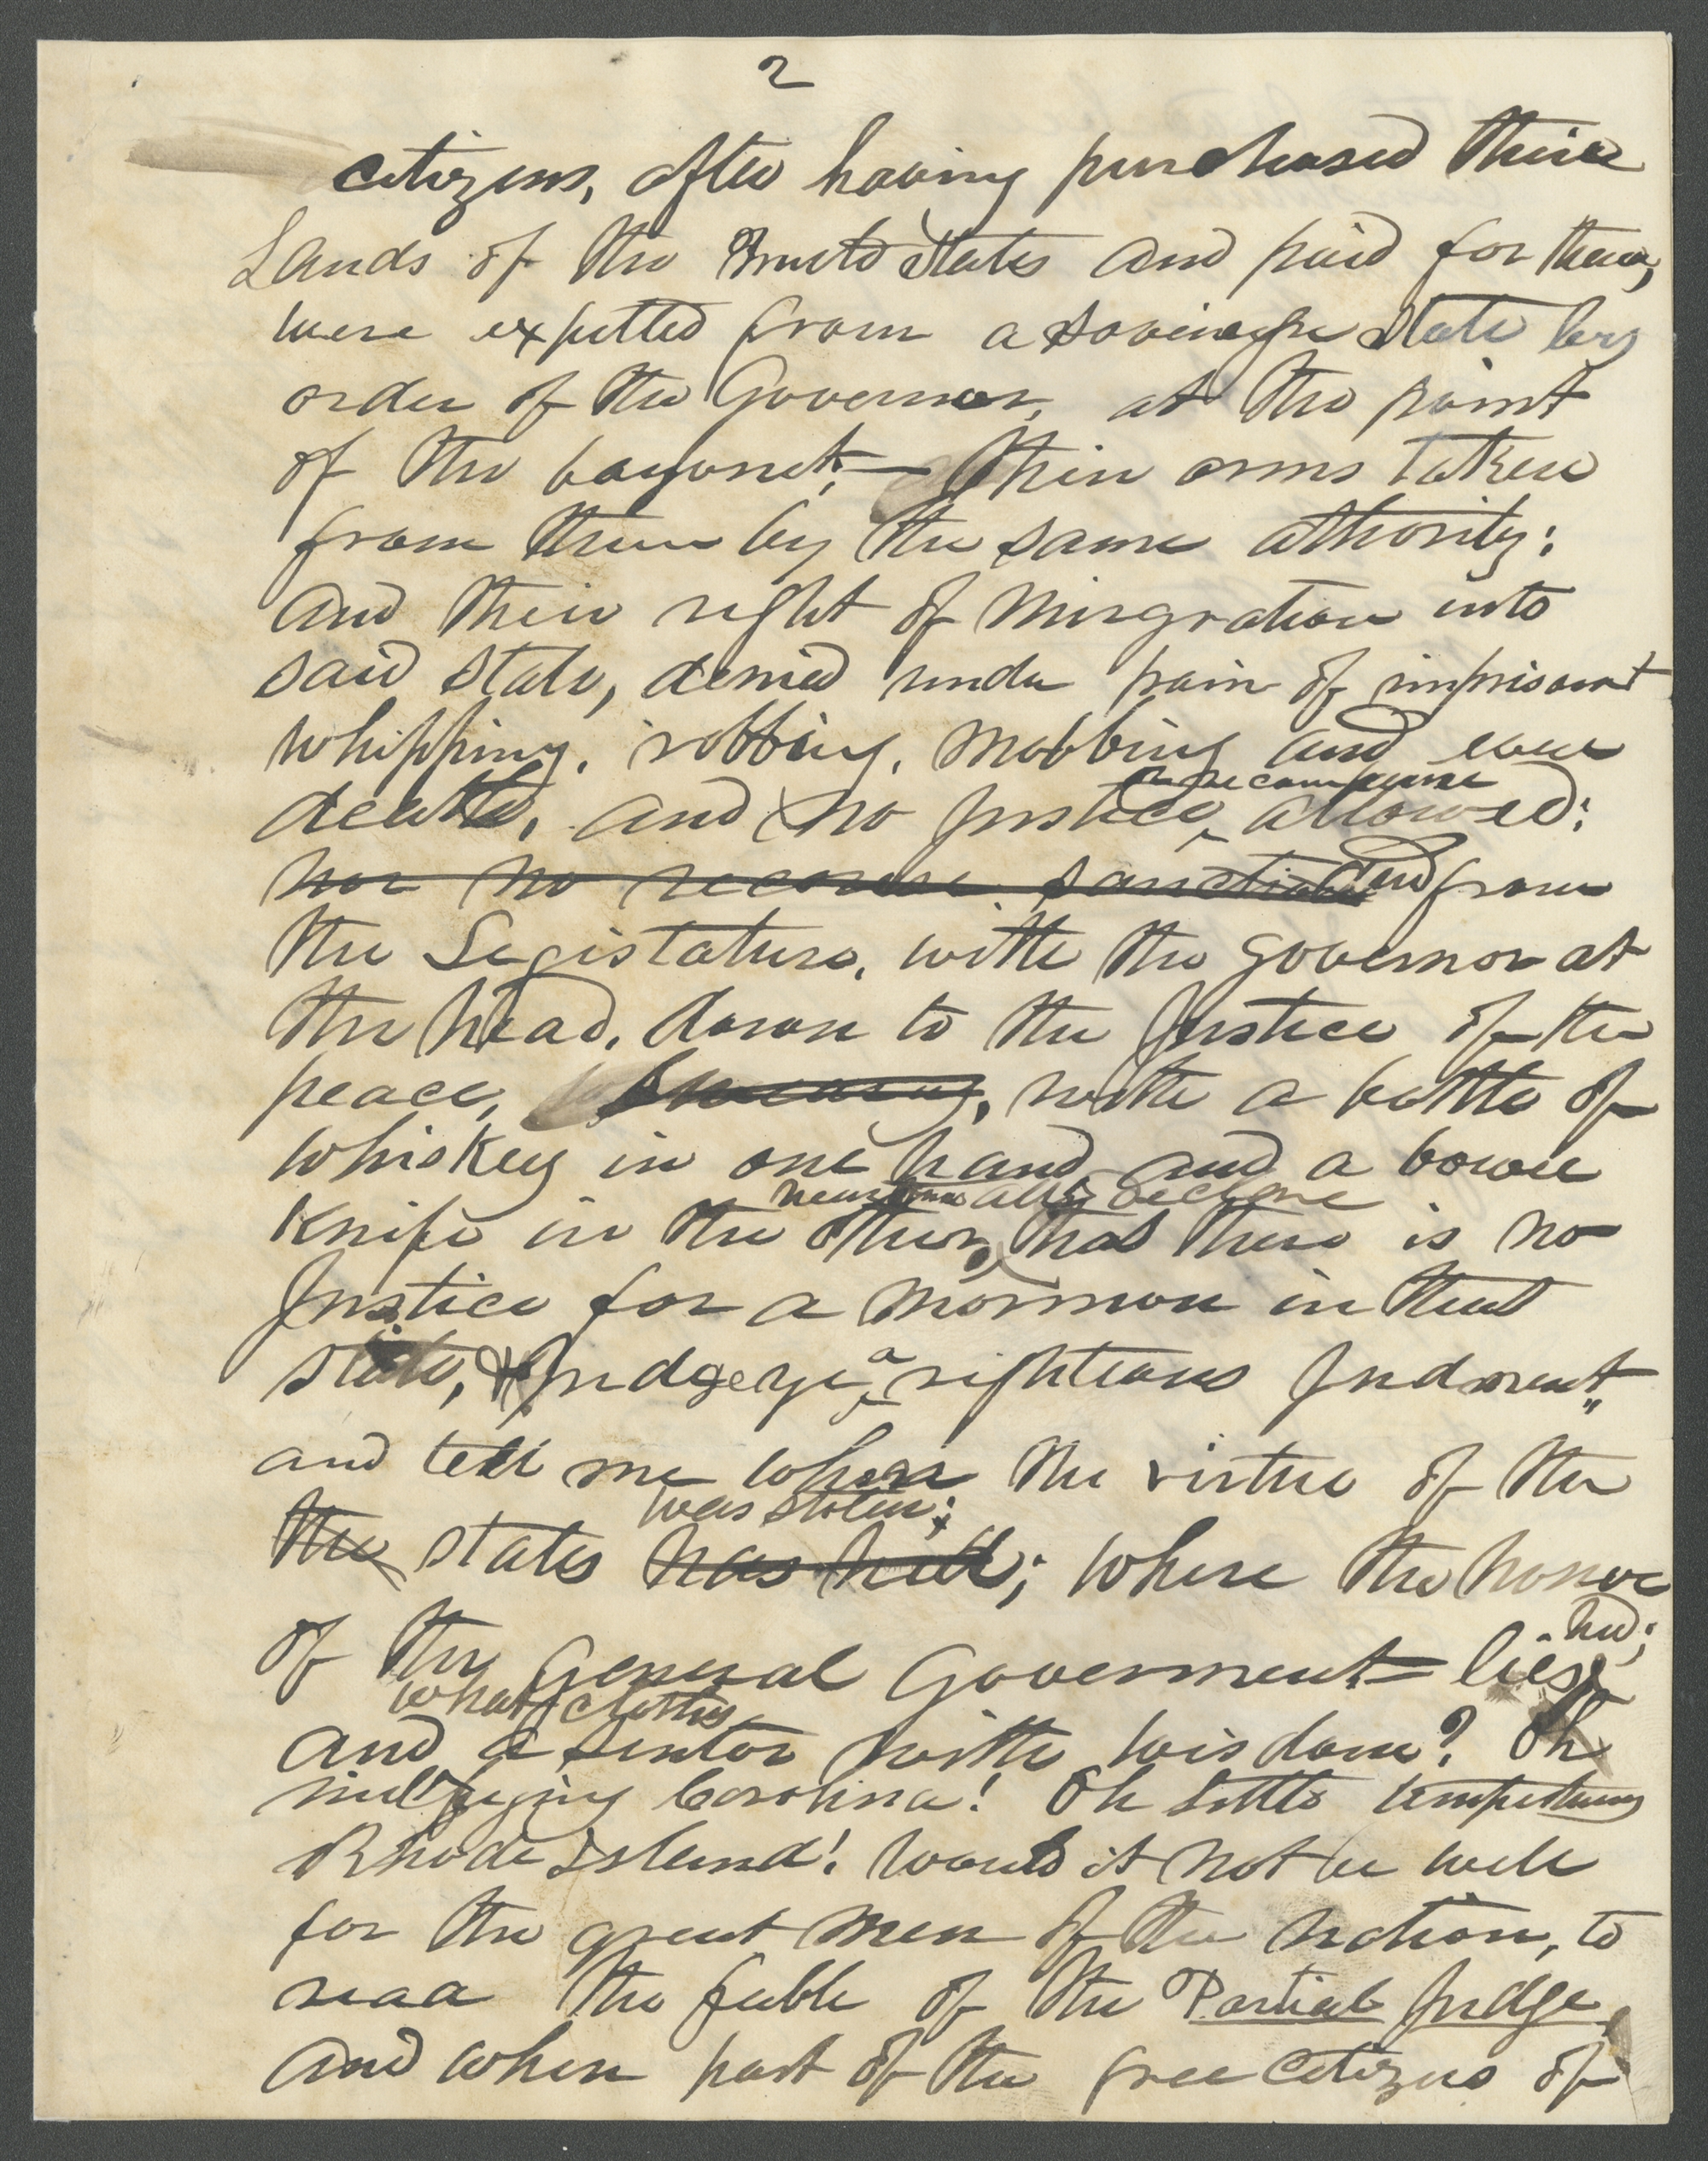 2
citizens, after having purchased their
Lands of the United States and paid for them,
were expelled from a sovereign State by
order of the Governor, at the point
of the bayonet;— their arms taken
from them by the same athority;
and their right of migration into
said state, denied under pain of imprisomt
whipping, robbing, mobbing and even
death, and no justice or recompense allowed;
nor no recourse sanctioned and from
the Legislature, with the governor at
the head, down to the Justice of the
peace, with a bottle of
whiskey in one hand and a bowie
knife in the other, hear them all declare that there is no
Justice for a mormon in that
state, Judge ye a righteous Judment,
and tell me when the virtue of the
the states was stolen; has hid; where the honor
of the General Goverment lies hid;
and what clothes a senator with wisdom? Oh
nullifying Carolina! Oh Little tempestuous
Rhode Island! would it not be well
for the great men of the nation, to
read the fable of the Partial judge,
and when part of the free citizens of